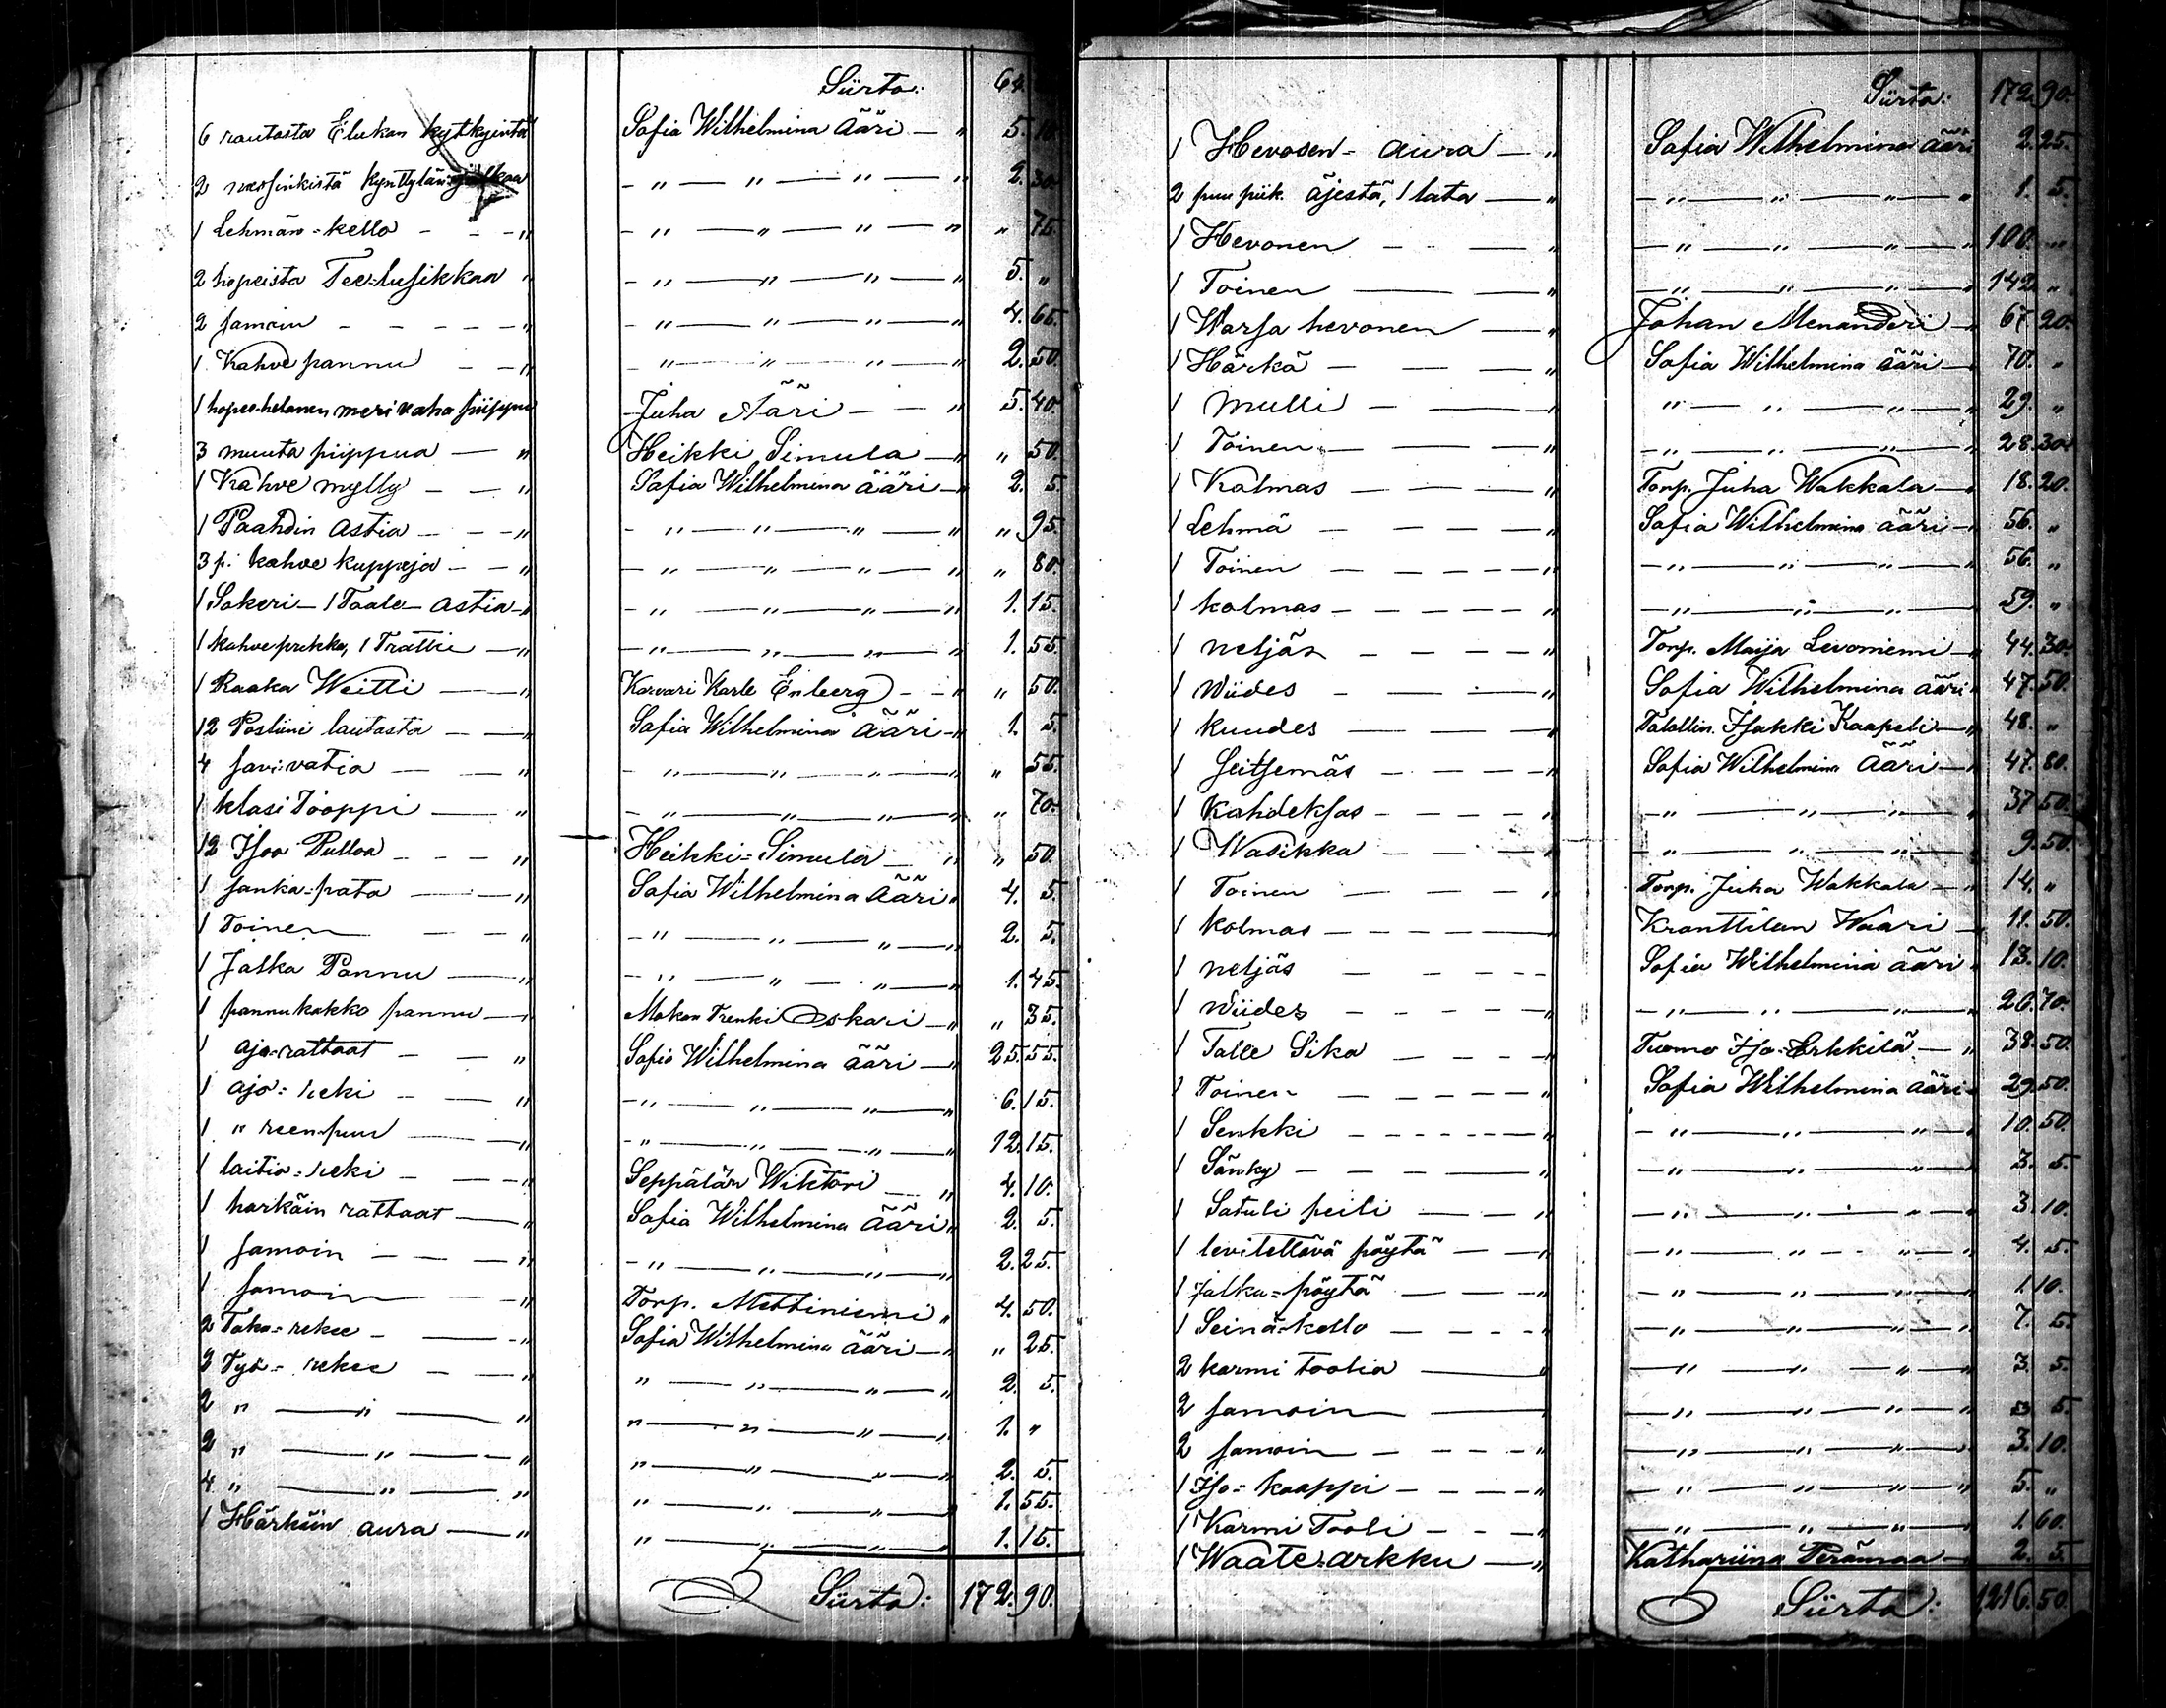 Siirto: 64.
6 rautasta Elukan kytkyintä Sofia Wilhelmina Ääri — " 5. 10.
2 messinkistä kynttylän jalkaa — " — " — " — " 2. 30.
1 Lehmän-kello — " — " — " — " — " " 75.
2 hopeista Tee-lusikkaa " — " — " — " — " 5. "
2 samoin — " — " — " — " — " 4. 65.
1 Kahve pannu — " — " — " — " — " 2. 50.
1 hopea-helanen merivaha piippu Juha Ääri — " 5. 40.
3 muuta piippua — " Heikki Simula — " " 50.
1 Kahve mylly — " Sofia Wilhelmina Ääri — " 2. 5.
1 Paahdin astia — " — " — " — " — " " 95.
3 p: kahve kuppeja — " — " — " — " — " " 80.
1 Sokeri — 1 Taale astia — " — " — " — " — " 1. 15.
1 kahveprikka, 1 Tratti — " — " — " — " — " 1. 55.
1 Raaka Weitti — " Karvari Karle Enberg — " " 50.
12 Posliini lautasta — " Sofia Wilhelmina Ääri — " 1. 5.
4 savi-vatia — " — " — " — " — " " 55.
1 klasi Tooppi — " — " — " — " — " " 70.
12 Isoa Pulloa — " Heikki-Simula — " " 50.
1 sanka-pata — " Sofia Wilhelmina Ääri " 4. 5.
1 Toinen — " — " — " — " — " 2. 5.
1 Jalka Pannu — " — " — " — " 1. 45.
1 pannukakko pannu — " Mokan Trenki Oskari — " " 35.
1 ajo-rattaat — " Sofia Wilhelmina Ääri — " 25. 55.
1 ajo-reki — " — " — " — " — " 6. 15.
1 " reen-puu — " — " — " — " — " 12. 15.
1 laitio-reki — " Seppälän Wiktori — " 4. 10.
1 harkäin rattaat — " Sofia Wilhelmina Ääri " 2. 5.
1 samoin — " — " — " — " — " 2. 25.
1 samoin — " Torp. Mettiniemi " 4. 50.
2 Tako-rekee — " Sofia Wilhelmina Ääri — " " 25.
3 Työ-rekee — " " — " — " — " 2. 5.
2 " — " — " " — " — " — " 1. "
2 " — " — " " — " — " — " 2. 5.
4 " — " — " " — " — " — " 1. 55.
1 Härkäin aura — " " — " — " — " 1. 15.
Siirto: 172. 90.
Siirto: 172. 90.
1 Hevosen-aura — " Sofia Wilhelmina Ääri 2. 25.
2 puu piik. äjestä, 1 lata — " — " — " — " — " 1. 5.
1 Hevonen — " — " — " — " — " 100. "
1 Toinen — " — " — " — " — " 142. "
1 Warsa hevonen — " Johan Menanderi — " 67. 20.
1 Härkä — " Sofia Wilhelmina Ääri — " 70. "
1 Mulli — " " — " — " — " 29. "
1 Toinen — " — " — " — " — " 28. 30.
1 Kolmas — " Torp. Juha Wakkala — " 18. 20.
1 Lehmä — " Sofia Wilhelmina Ääri — " 56. "
1 Toinen — " — " — " — " — " 56. "
1 kolmas — " — " — " — " — " 59. "
1 neljäs — " Torp. Maija Levoniemi — " 44. 30.
1 Wiides — " Sofia Wilhelmina Ääri " 47. 50.
1 kuudes — " Talollin. Isakki Kaapeli — " 48. "
1 seitsemäs — " Sofia Wilhelmina Ääri — " 47. 80.
1 Kahdeksas — " — " — " — " — " 37. 50.
1 Wasikka — " — " — " — " — " 9. 50.
1 Toinen — " Torp. Juha Wakkala — " 14. "
1 kolmas — Kranttilan Waari — 11. 50.
1 neljäs — Sofia Wilhelmina Ääri " 13. 10.
1 Wiides — " — " — " — " — " 26. 70.
1 Talle Sika — " Tuomo Iso-Erkkilä — " 38. 50.
1 Toinen — " Sofia Wilhelmina Ääri " 29. 50.
1 Senkki — " — " — " — " — " 10. 50.
1 Sänky — " — " — " — " — " 3. 5.
1 Satuli peili — " — " — " — " — " 3. 10.
1 levitettävä pöytä — " — " — " — " — " 4. 5.
1 jalka-pöytä — " — " — " — " — " 1. 10.
1 Seinä-kello — " — " — " — " — " 7. 5.
2 karmi toolia — " — " — " — " — " 3. 5.
2 samoin — " — " — " — " — " 3. 5.
2 samoin — " — " — " — " — " 3. 10.
1 Iso-kaappi — " — " — " — " — " 5. "
1 Karmi Tooli — " — " — " — " — " 1. 60.
1 Waate-arkku — " Kathariina Perämaa — " 2. 5.
Siirto: 1216. 50.